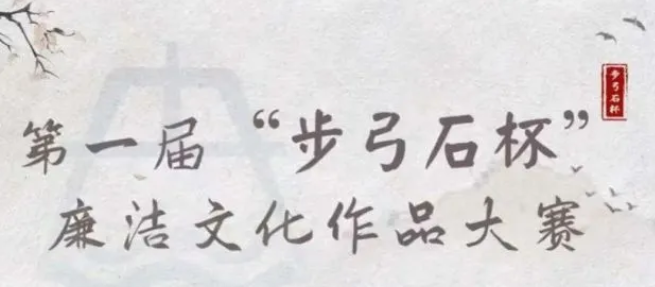 第一届“步弓石杯”
廉洁文化作品大赛
步弓石杯